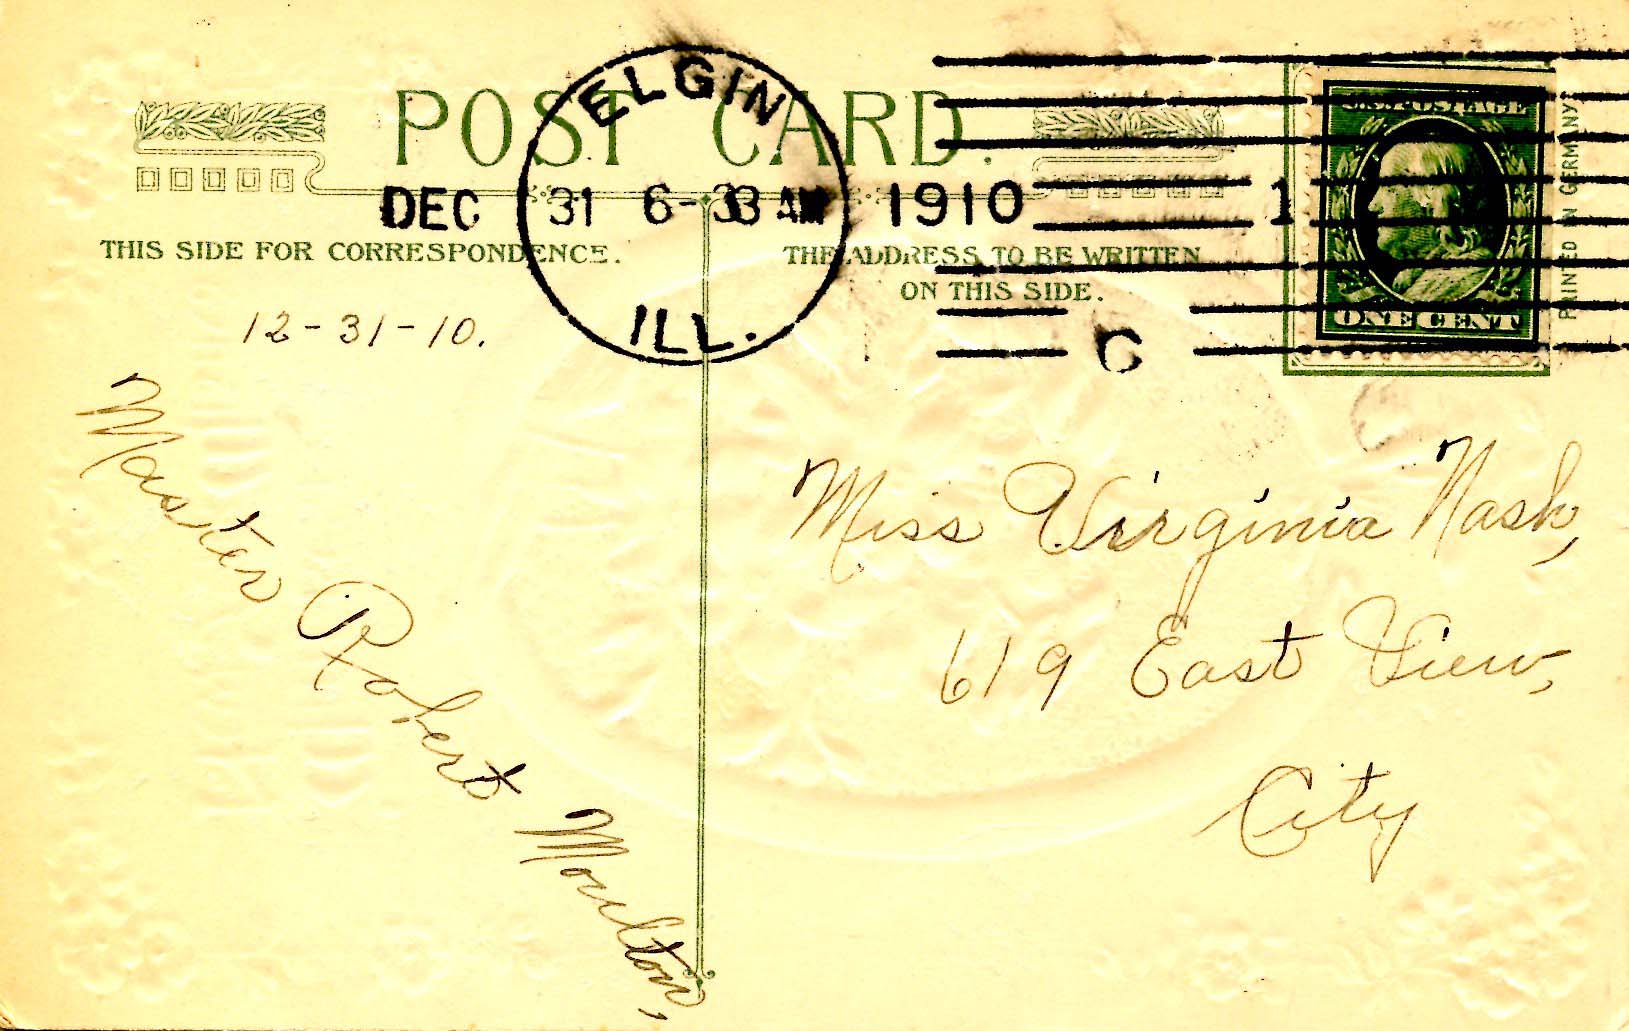 POST CARD.
ELGIN
DEC 31 6-30 AM 1910 1
ILL.
C
U.S. POSTAGE
ONE CENT
PRINTED IN GERMANY
THIS SIDE FOR CORRESPONDENCE.
THE ADDRESS TO BE WRITTEN
ON THIS SIDE.
12-31-10.
Master Robert Moulton,
Miss Virginia Nash,
619 East View,
City